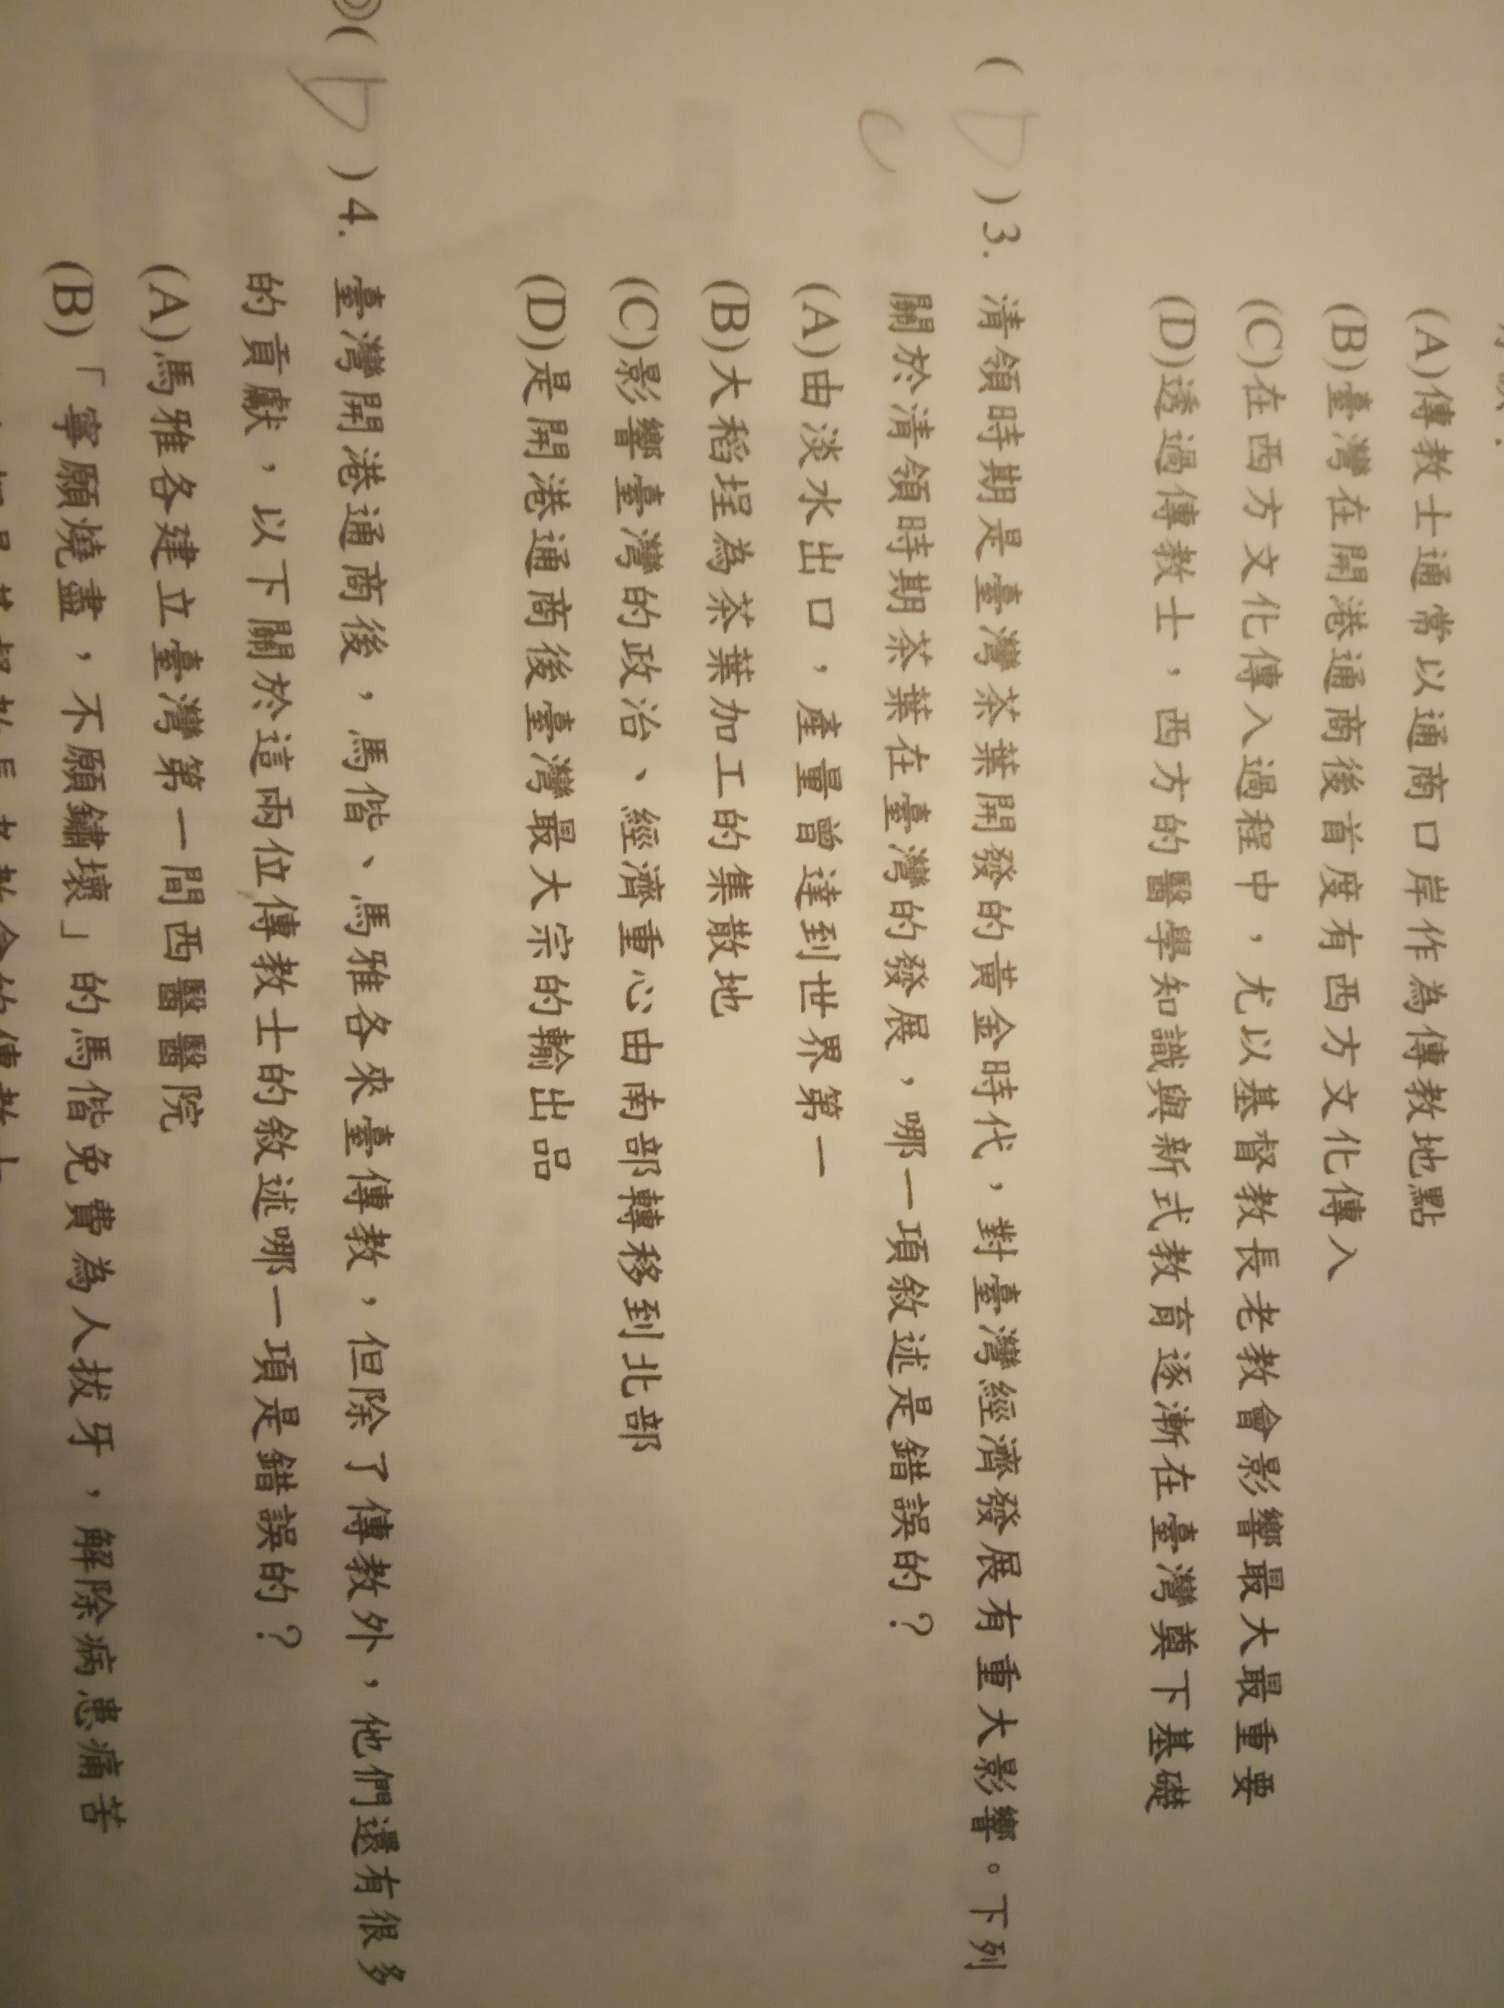 (A)傳教士通常以通商口岸作為傳教地點
(B)臺灣在開港通商後首度有西方文化傳入
(C)在西方文化傳入過程中，尤以基督教長老教會影響最大最重要
(D)透過傳教士，西方的醫學知識與新式教育逐漸在臺灣奠下基礎
( D )3. 清領時期是臺灣茶葉開發的黃金時代，對臺灣經濟發展有重大影響。下列
關於清領時期茶葉在臺灣的發展，哪一項敘述是錯誤的？
(A)由淡水出口，產量曾達到世界第一
(B)大稻埕為茶葉加工的集散地
(C)影響臺灣的政治、經濟重心由南部轉移到北部
(D)是開港通商後臺灣最大宗的輸出品
◎( D )4. 臺灣開港通商後，馬偕、馬雅各來臺傳教，但除了傳教外，他們還有很多
的貢獻，以下關於這兩位傳教士的敘述哪一項是錯誤的？
(A)馬雅各建立臺灣第一間西醫醫院
(B)「寧願燒盡，不願鏽壞」的馬偕免費為人拔牙，解除病患痛苦